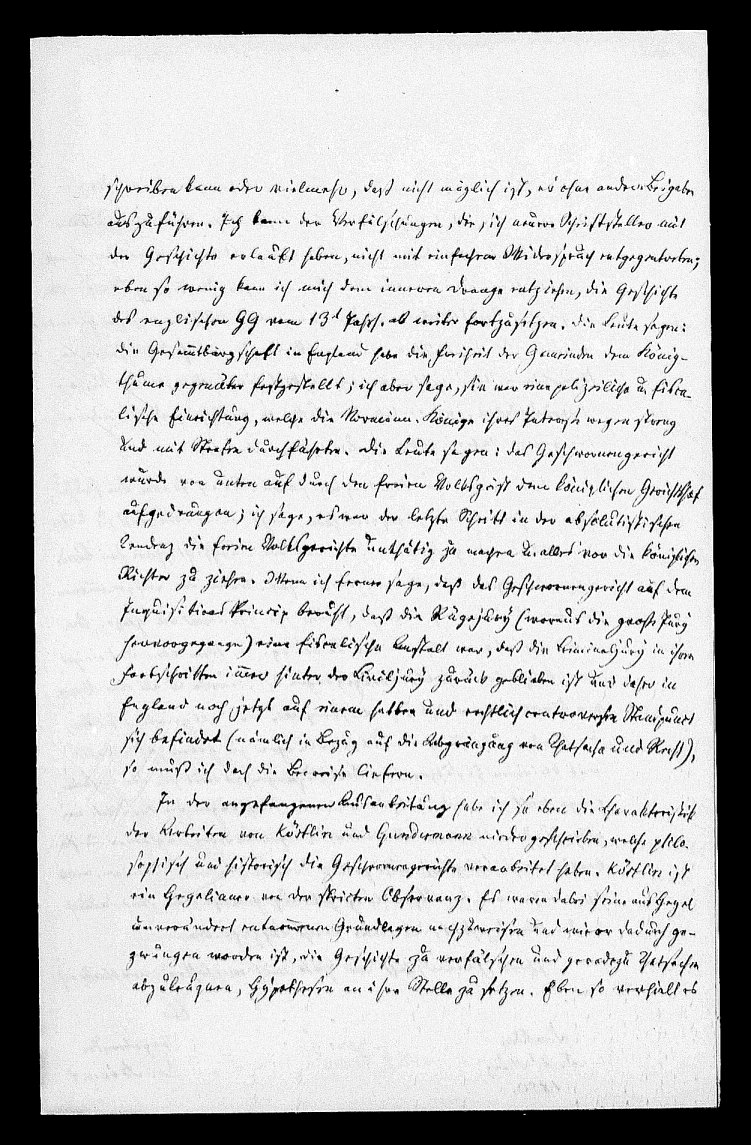 schreiben kann oder vielmehr, daß nicht möglich ist, es ohne andere Beigaben
auszuführen. Ich kann den Verfälschungen, die sich neuere Schriftsteller mit
der Geschichte erlaubt haben, nicht mit einfachem Widerspruch entgegentreten;
eben so wenig kann ich mich dem inneren Drange entziehen, die Geschichte
des englischen GG vom 13t Jahrh. ab weiter fortzusetzen. Die Leute sagen:
die Gesammtbürgschaft in England habe die Freiheit der Gemeinden dem König-
thume gegenüber festgestellt; ich aber sage, sie war eine polizeiliche u. fisca-
lische Einrichtung, welche die Normänn. Könige ihres Interesse wegen streng
und mit Strafen durchführten. Die Leute sagen: das Geschwornengericht
wurde von unten auf durch den freien Volksgeist dem königlichen Gerichtshof
aufgedrungen; ich sage, es war der letzte Schritt in der absolutistischen
Tendenz die freien Volksgerichte unthätig zu machen u. alles vor die königlichen
Richter zu ziehen. Wenn ich ferner sage, daß das Geschwornengericht auf dem
Inquisitions Princip beruht, daß die Rügejury (woraus die große Jury
hervorgegangen) eine fiscalische Anstalt war, daß die Criminaljury in ihren
Fortschritten immer hinter der Civiljury zurück geblieben ist und daher in
England noch jetzt auf einem halben und rechtlich controversen Standpunct
sich befindet (nämlich in Bezug auf die Abgränzung von Thatsache und Recht),
so muß ich doch die Beweise liefern.
In der angefangenen Ausarbeitung habe ich so eben die Charakteristik
der Arbeiten von Köstlin und Gundermann niedergeschrieben, welche philo-
sophisch und historisch die Geschwornengerichte verarbeitet haben. Köstlin ist
ein Hegelianer von der stricten Observanz. Es waren dabei seine aus Hegel
unverändert entnommenen Grundlagen nachzuweisen und wie er dadurch ge-
zwungen worden ist, die Geschichte zu verfälschen und geradezu Thatsachen
abzuleugnen, Hypothesen an ihre Stelle zu setzen. Eben so verhielt es